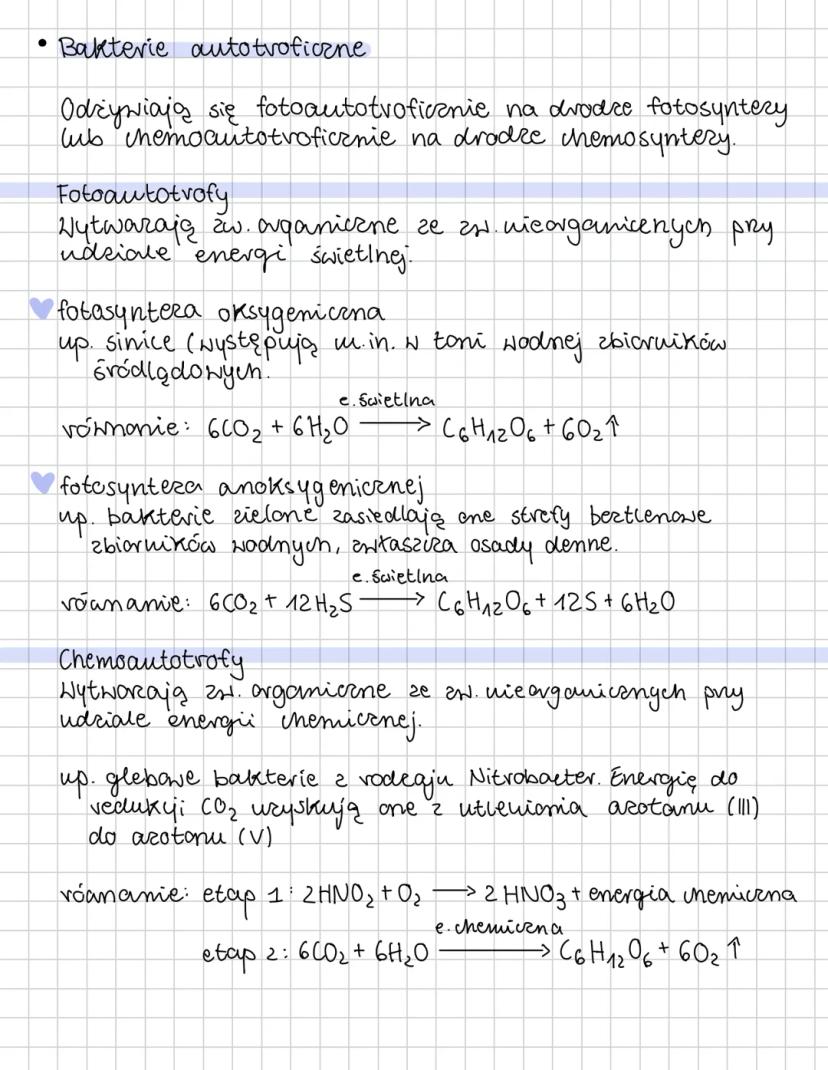 • Bakterie autotroficzne
Odżywiają się fotoautotroficznie na drodze fotosyntezy
lub chemoautotroficznie na drodze chemosyntezy.
Fotoautotrofy
Wytwarzają zw. organiczne ze zw. nieorganicznych przy
udziale energi świetlnej.
fotosynteza oksygeniczna
np. sinice (występują m.in. w toni wodnej zbiorników
śródlądowych.
e. świetlna
równanie: 6CO₂ + 6H₂O ⟶ C₆H₁₂O₆ + 6O₂↑
fotosynteza anoksygenicznej
np. bakterie zielone zasiedlają one strefy beztlenowe
zbiorników wodnych, zwłaszcza osady denne.
e. świetlna
równanie: 6CO₂ + 12H₂S ⟶ C₆H₁₂O₆ + 12S + 6H₂O
Chemoautotrofy
Wytwarzają zw. organiczne ze zw. nieorganicznych przy
udziale energii chemicznej.
np. glebowe bakterie z rodzaju Nitrobacter. Energię do
redukcji CO₂ uzyskują one z utlenienia azotanu (III)
do azotanu (V)
równanie: etap 1: 2HNO₂ + O₂ ⟶ 2HNO₃ + energia chemiczna
e. chemiczna
etap 2: 6CO₂ + 6H₂O ⟶ C₆H₁₂O₆ + 6O₂↑